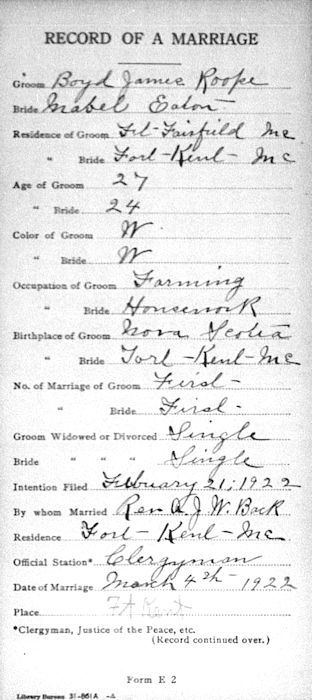 RECORD OF A MARRIAGE
Groom Boyd James Roope
Bride Mabel Eaton
Residence of Groom Ft-Fairfield Me
" Bride Fort-Kent- Me
Age of Groom 27
" Bride 24
Color of Groom W
" Bride W
Occupation of Groom Farming
" Bride Housework
Birthplace of Groom Nova Scotia
" Bride Fort-Kent-Me
No. of Marriage of Groom First-
" Bride First-
Groom Widowed or Divorced Single
Bride " " " Single
Intention Filed February 21, 1922
By whom Married Rev A J W. Back
Residence Fort-Kent-Me
Official Station* Clergyman
Date of Marriage March 4th-1922
Place Ft Kent
*Clergyman, Justice of the Peace, etc.
(Record continued over.)
Form E 2
Library Bureau 31-861A -4